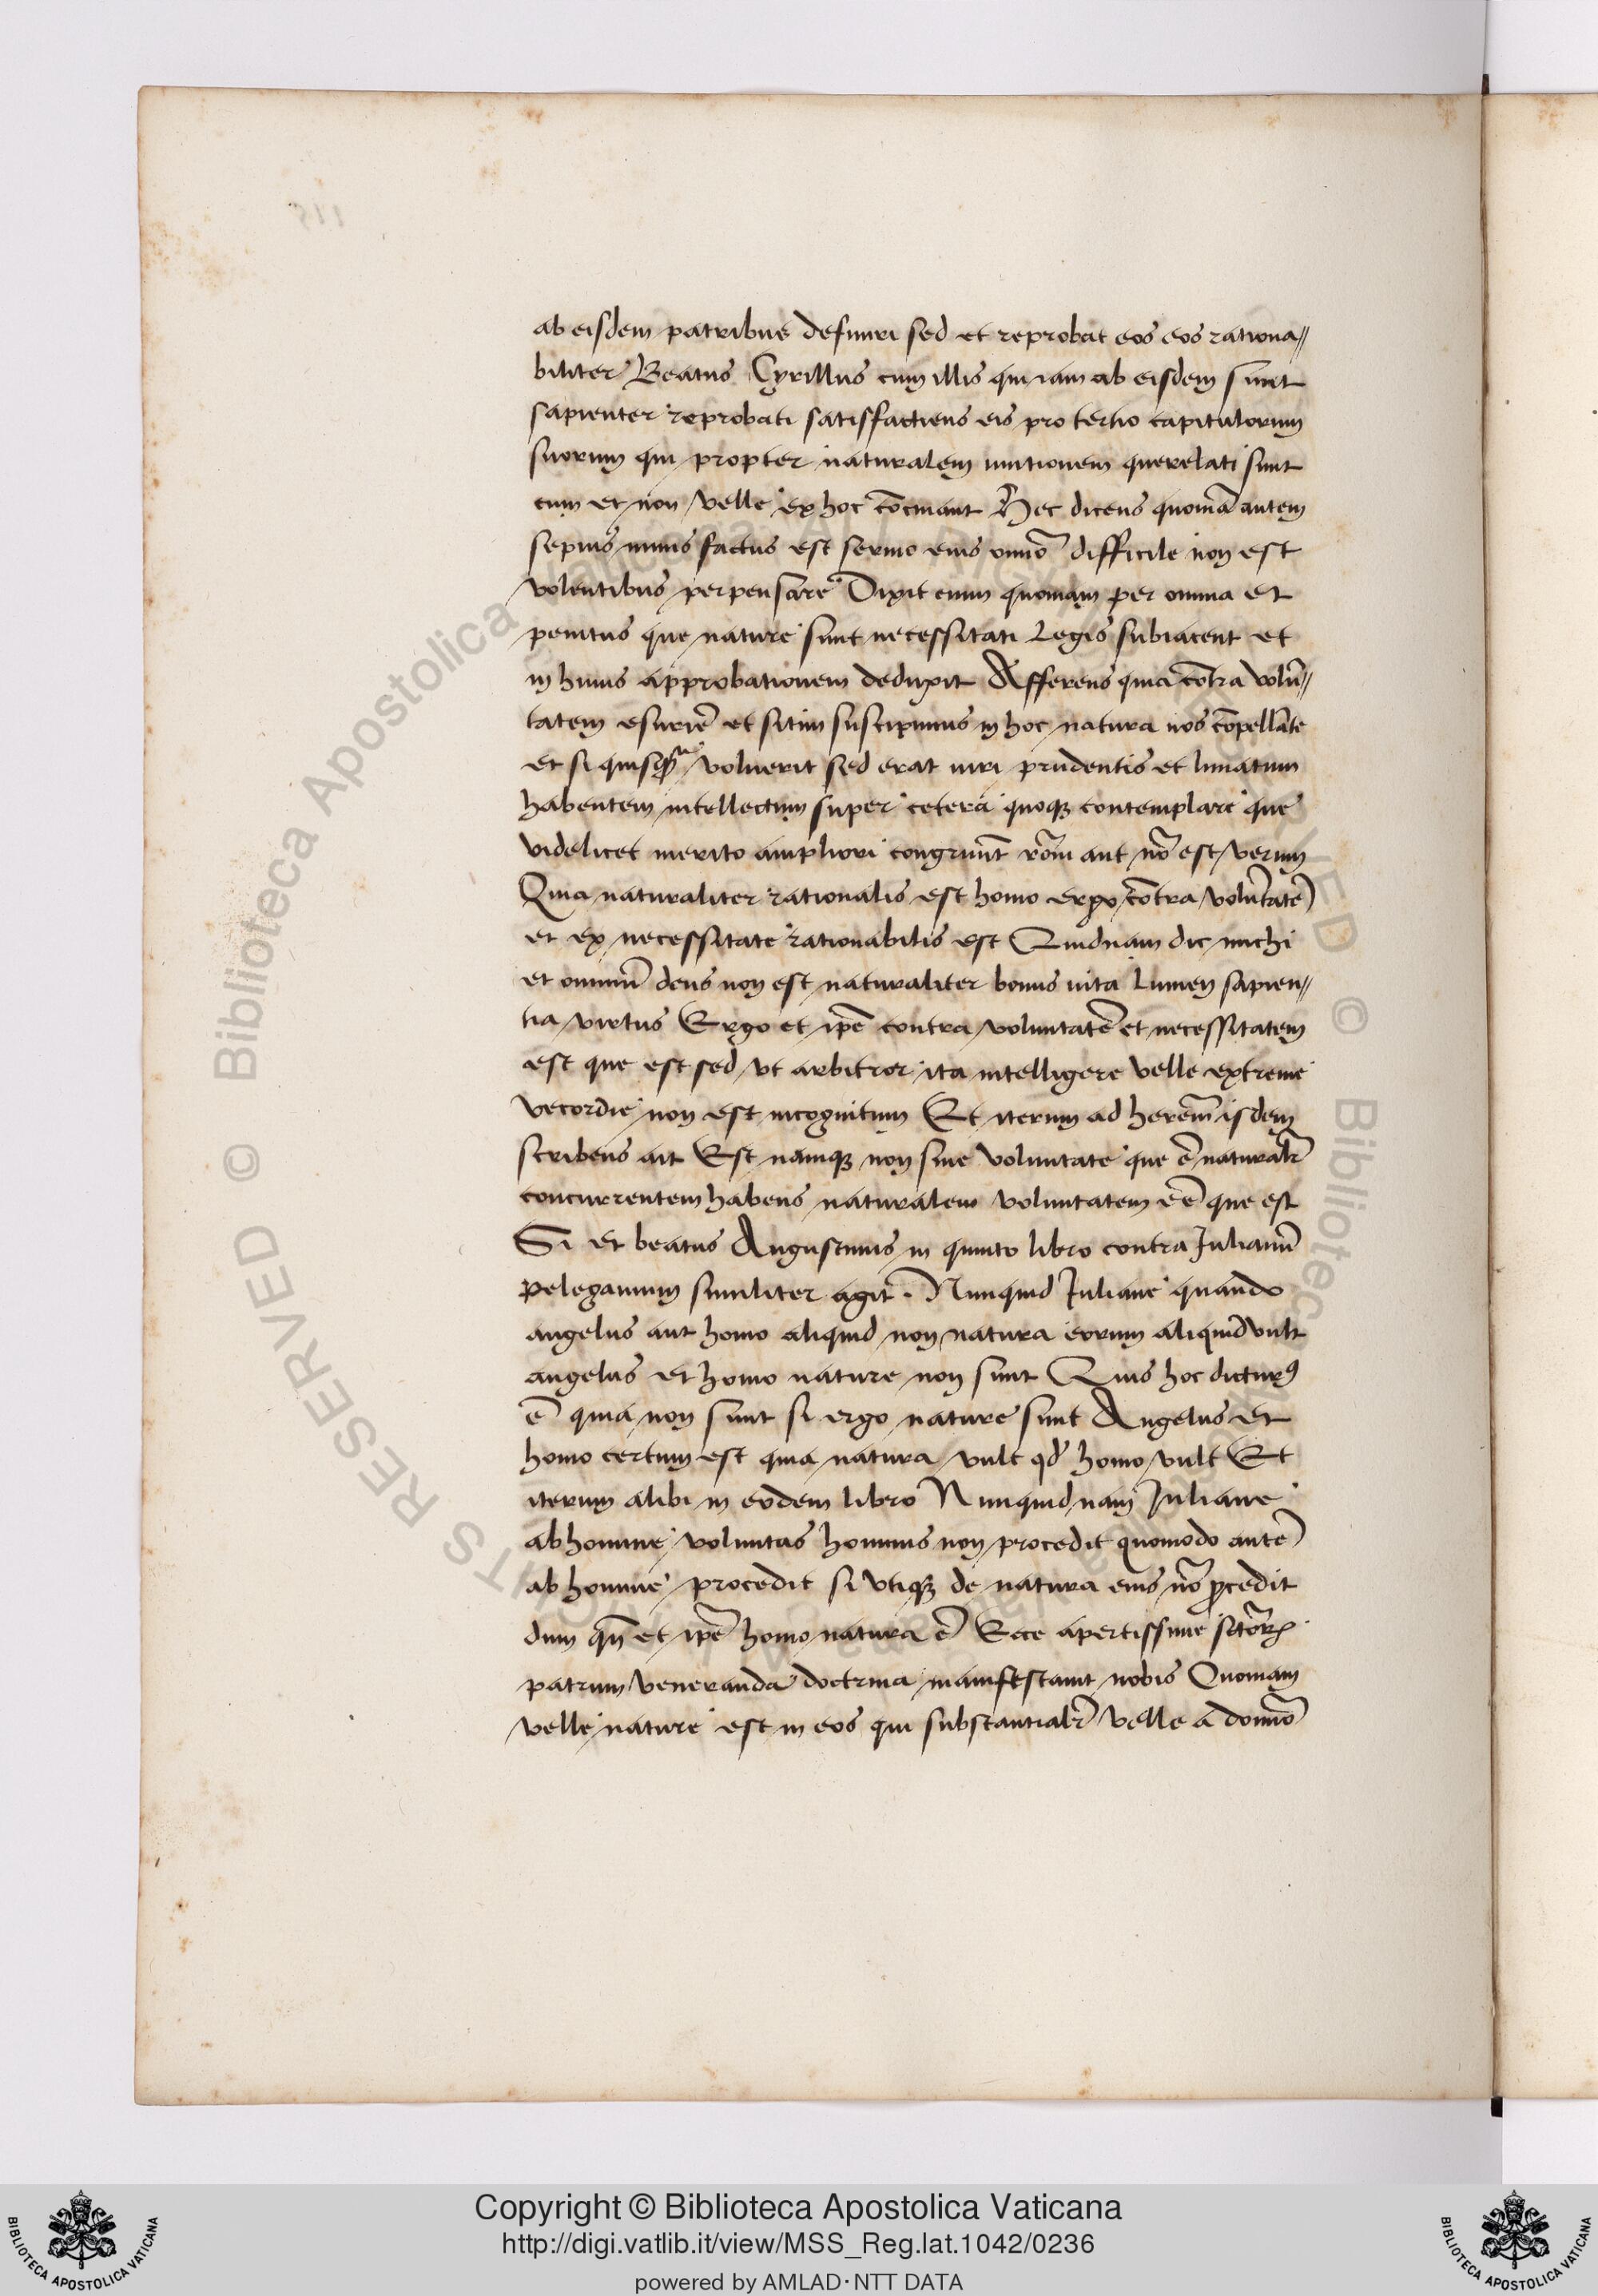 ab eisdem patribus definiri sed et reprobat eos eos rationa〃
biliter Beatus Cyrillus cum illis qui iam ab eisdem sunt
sapienter reprobati satisfactiens eis pro tertio capitulorum
suorum qui propter naturalem unitionem querelati sunt
cum et non velle ex hoc Hec dicens quoniā autem
sepius nimis factus est sermo eius difficile non est
volentibus perpensare Dixit enim quoniam per omnia et
penitus que nature sunt necessitati Legis subiacent et
in huius approbationem deduxit Afferens quia cōtra volū〃
tatem esuriē et sitim suscipimus in hoc natura nos cōpellāte
et si voluerit sed erat uiri prudentis et limatum
habentem intellectum super cetera quoqꝫ contemplare que
videlicet merito ampliori congruūt aut nō est verum
Quia naturaliter rationalis est homo ergo cōtra volūtatē
et ex necessitate rationabilis est Quidnam dic michi
et omniū deus non est naturaliter bonus uita Lumen sapien〃
tia virtus Ergo et ipē contra voluntatē et necessitatem
est que est sed vt arbitror ita intelligere velle extreme
vecordie non est incognitum Et iterum ad isdem
scribens ait Est namqꝫ non sine voluntate que ē naturalr̄
concurrentem habens naturalem voluntatem eē que est
Si et beatus Augustinus in quinto libro contra Julianū
peleganum similiter agit . Nunquid Juliane quando
angelus aut homo aliquid non natura eorum aliquid vult
angelus et homo nature non sunt Quis hoc dicturꝰ
ē quia non sunt si ergo nature sunt Angelus et
homo certum est quia natura vult qd̄ homo vult Et
iterum alibi in eodem libro Nunquid nam Juliane
ab homine voluntas hominis non procedit quomodo autē
ab homine procedit si vtiqꝫ de natura eius nō ꝓcedit
dum qn̄ et ipē homo natura ē Ecce apertissime sctōrꝝ
patrum veneranda doctrina manifestant nobis Quoniam
velle nature est in eos qui substantialr̄ velle a domīo
115
Copyright © Biblioteca Apostolica Vaticana
http://digi.vatlib.it/view/MSS_Reg.lat.1042/0236
powered by AMLAD·NTT DATA